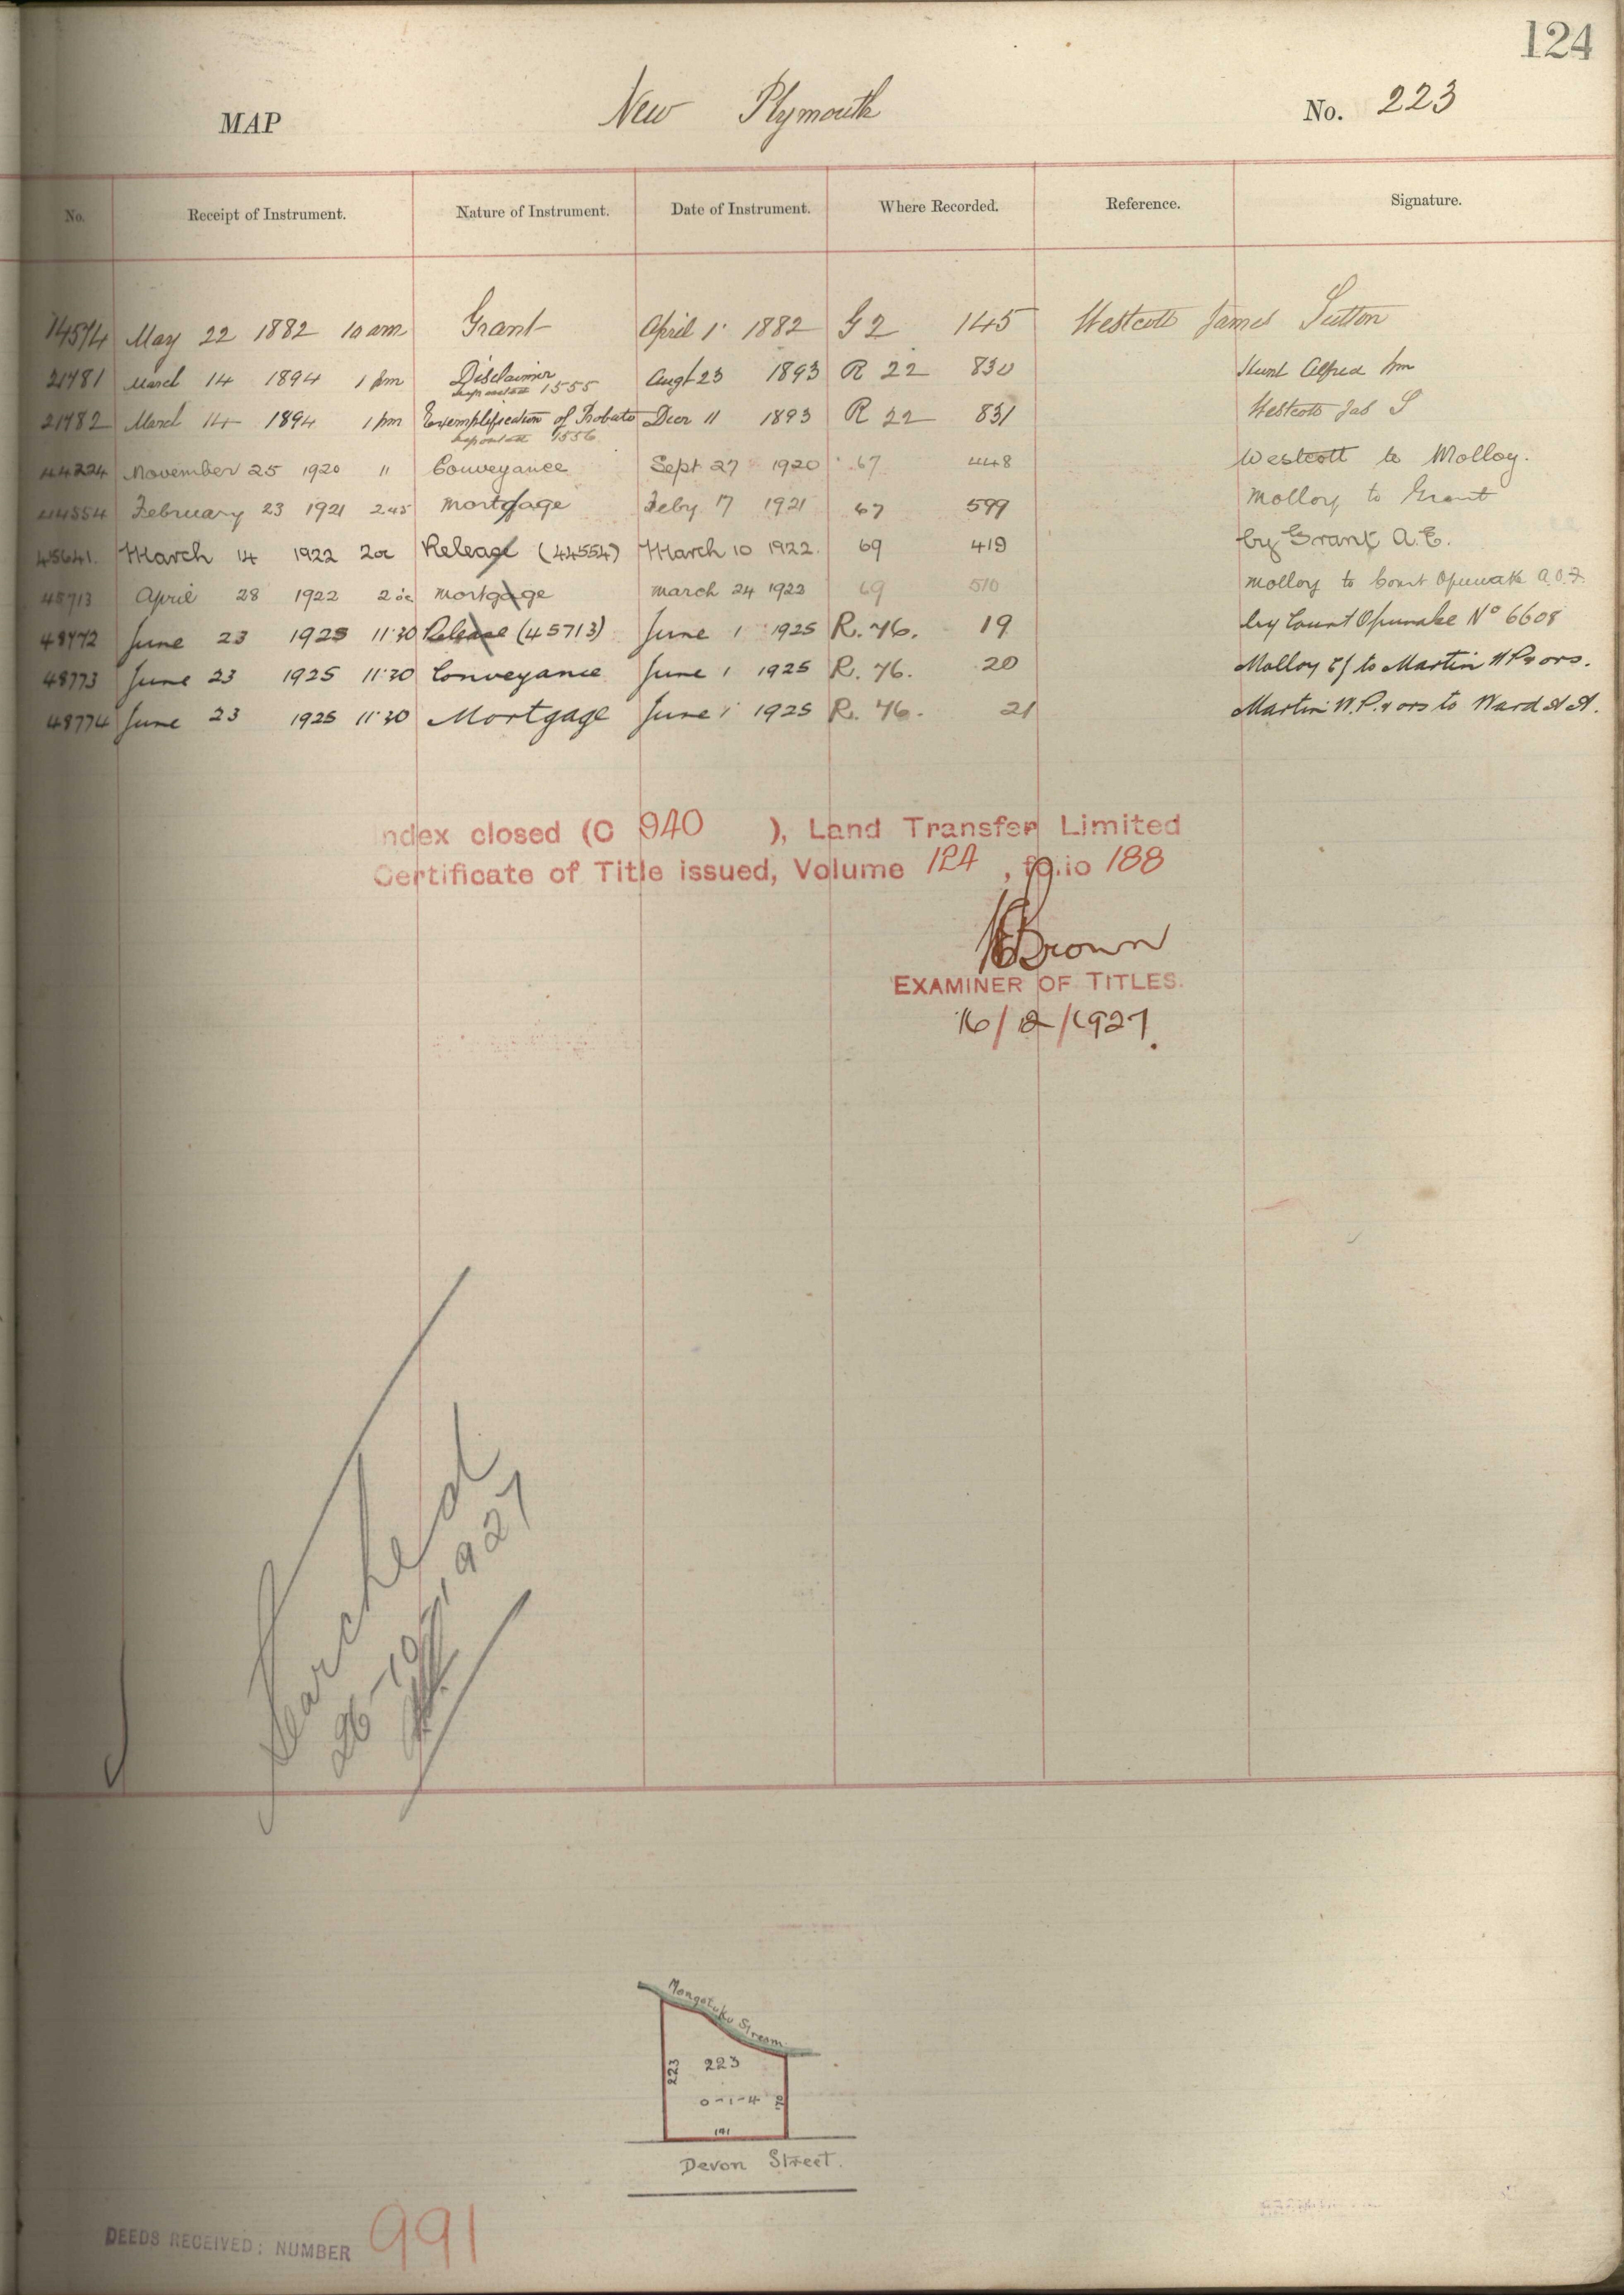 124
MAP New Plymouth No. 223
No. Receipt of Instrument. Nature of Instrument. Date of Instrument. Where Recorded. Reference. Signature.
14574 May 22 1882 10 am Grant April 1 1882 G 2 145 Westcott James Sutton
21481 March 14 1894 1 pm Disclaimer Augt 23 1893 R 22 830 Hunt Alfred Wm
1555
21482 March 14 1894 1 pm Exemplification of Probate Decr 11 1893 R 22 831 Westcott Jas S
1556
44224 November 25 1920 11 Conveyance Sept 27 1920 67 448 Westcott to Molloy.
44554 February 23 1921 2.45 Mortgage Feby 17 1921 67 599 Molloy to Grant
45641. March 14 1922 Release (44554) March 10 1922. 69 419 by Grant A.E.
45713 April 28 1922 mortgage march 24 1922 69 510 molloy to Court Opunake A.O.F.
48772 June 23 1925 11.30 Release (45713) June 1 1925 R. 76. 19 by Court Opunake No 6608
48773 June 23 1925 11.30 Conveyance June 1 1925 R. 76. 20 Molloy to Martin W P & ors.
48774 June 23 1925 11.30 Mortgage June 1 1925 R. 76. 21 Martin W.P. & ors to Ward A A.
Index closed (C 940 ), Land Transfer Limited
Certificate of Title issued, Volume 124, folio 188
Brown
EXAMINER OF TITLES.
16/12/1927.
Searched
26-10-1927
Mangotuku Stream
223
223
0-1-4
191
Devon Street.
DEEDS RECEIVED: NUMBER 991